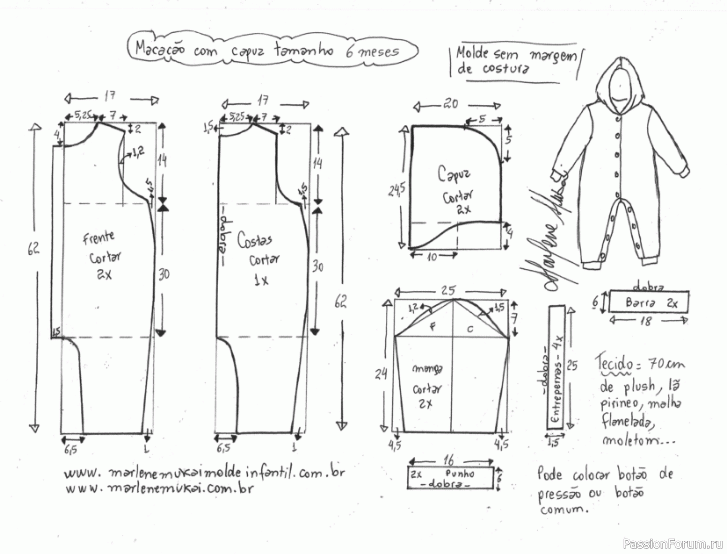 Macacão com capuz tamanho 6 meses
Molde sem margem
de costura
17
5,25
7
4
2
1,2
14
1,5
62
Frente
cortar
2x
30
1,5
6,5
1
17
1,5
5,25
7
2
14
1,5
-dobra-
Costas
cortar
1x
30
62
6,5
1
20
5
5
24,5
Capuz
cortar
2x
10
4
25
1,2
1,5
7
F
C
24
manga
cortar
2x
4,5
4,5
16
2x Punho
-dobra-
6
Marlene Mukai
dobra
6
Barra 2x
18
-dobra-
Entrepernas - 4x
25
1,5
Tecido = 70cm
de plush, lã
pirineo, malha
flanelada,
moletom...
Pode colocar botão de
pressão ou botão
comum.
www.marlenemukaimoldeinfantil.com.br
www.marlenemukai.com.br
PassionForum.ru